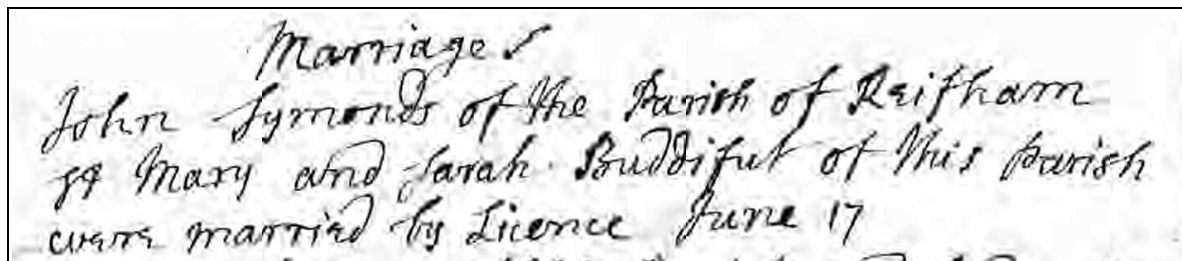 Marriages
John Symonds of the Parish of Reifham
St Mary and Sarah Buddifut of this Parish
were married by Licence June 17